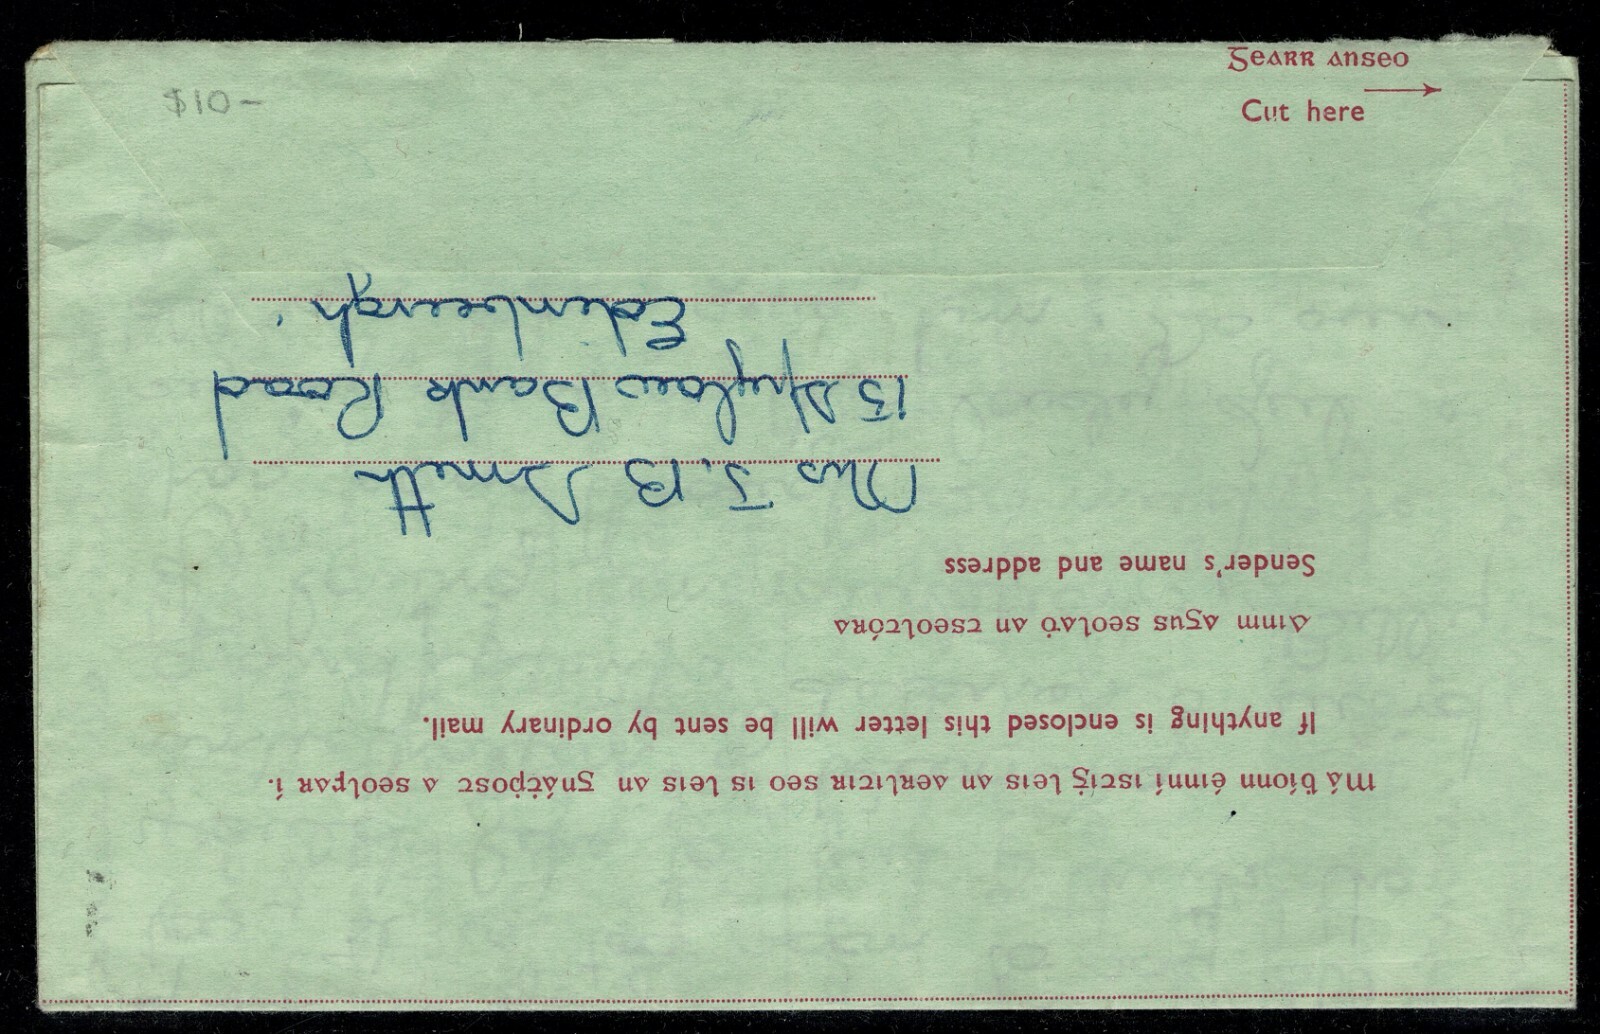 Gearr anseo
Cut here
$10-
Má ḃíonn éinní istiġ leis an aerlitir seo is leis an gnáṫṗost a seolfar í.
If anything is enclosed this letter will be sent by ordinary mail.
Ainm agus seolaḋ an tseoltóra
Sender's name and address
Mrs J.B Smith
13 Spylaw Bank Road
Edinburgh.